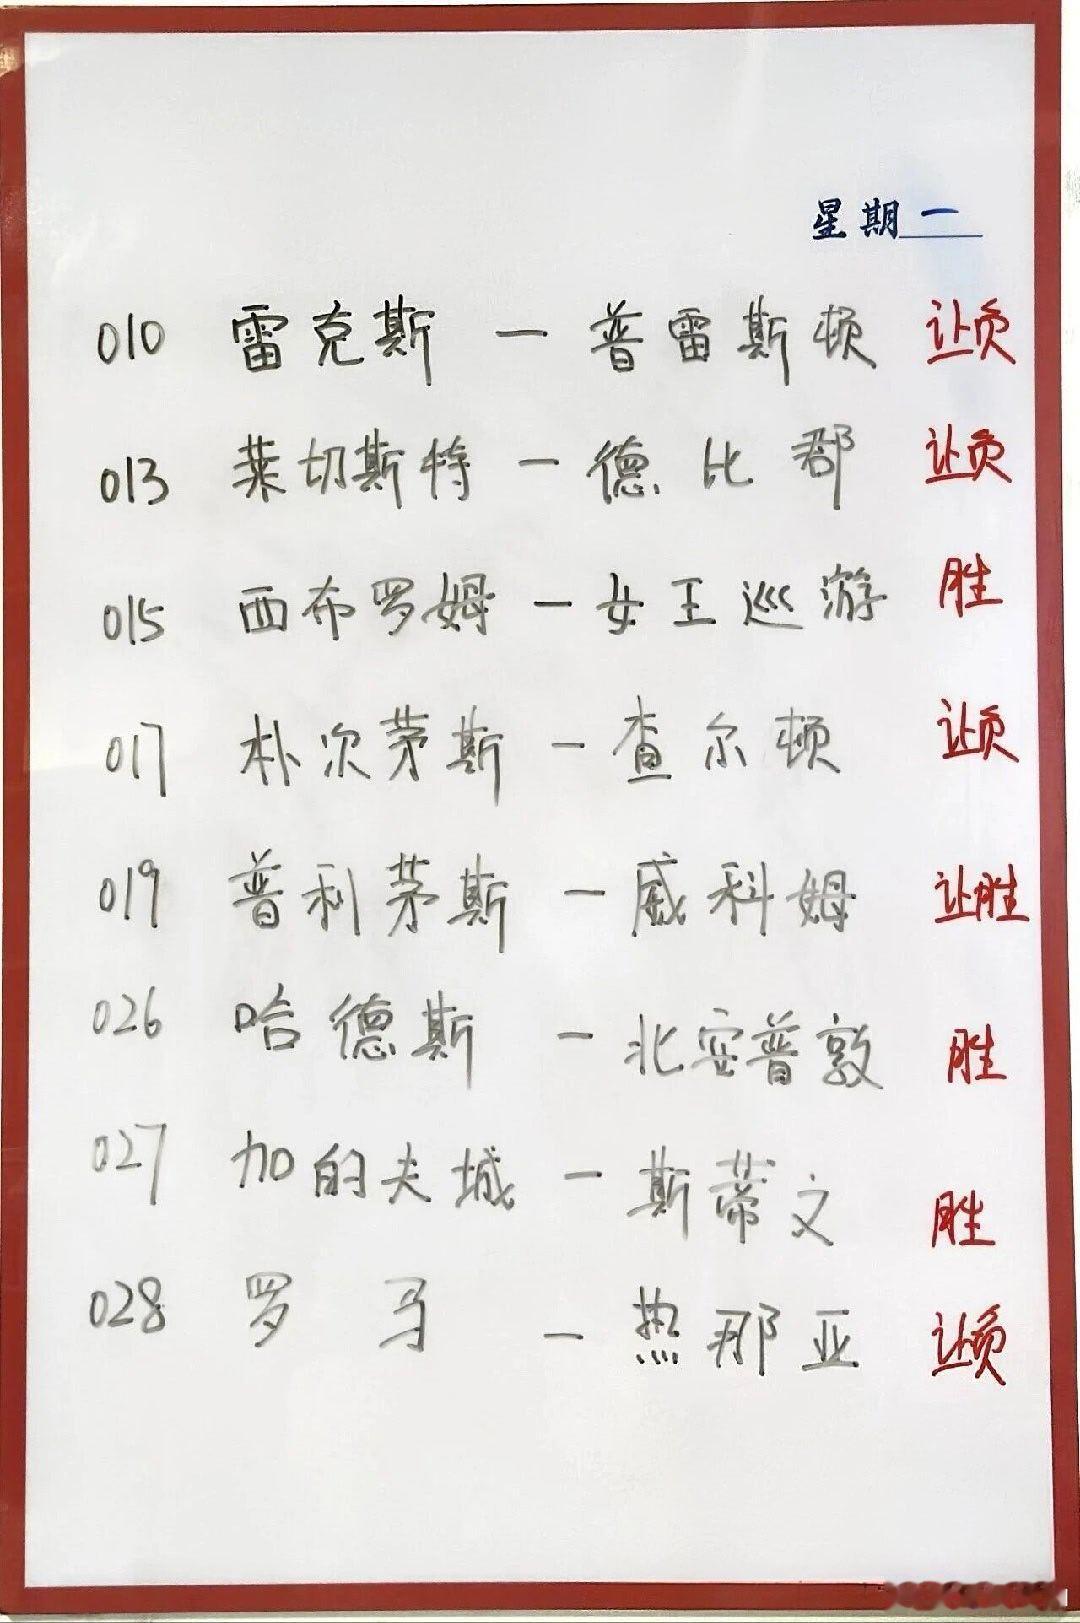 星期一
010 雷克斯 — 普雷斯顿 让负
013 莱切斯特 — 德比郡 让负
015 西布罗姆 — 女王巡游 胜
017 朴次茅斯 — 查尔顿 让负
019 普利茅斯 — 威科姆 让胜
026 哈德斯 — 北安普敦 胜
027 加的夫城 — 斯蒂文 胜
028 罗马 — 热那亚 让负